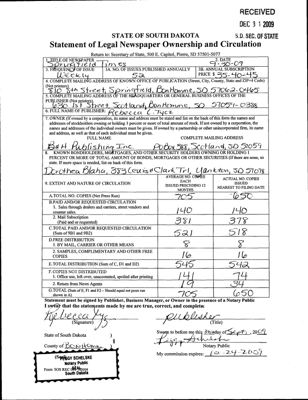 RECEIVED
DEC 31 2009
S.D. SEC. OF STATE
STATE OF SOUTH DAKOTA
Statement of Legal Newspaper Ownership and Circulation
Return to: Secretary of State, 500 E. Capitol, Pierre, SD 57501-5077
1. TITLE OF NEWSPAPER
2. DATE
Springfield Times
9-30-09
3. FREQUENCY OF ISSUE
3A. NO. OF ISSUES PUBLISHED ANNUALLY
3B. ANNUAL SUBSCRIPTION
Weekly
52
PRICE $ 35-40-45
4. COMPLETE MAILING ADDRESS OF KNOWN OFFICE OF PUBLICATION (Street, City, County, State and ZIP+4 Code)
(Not printers)
Springfield, Bon Homme, SD 57062-0465
5. COMPLETE MAILING ADDRESS OF THE HEADQUARTERS OF GENERAL BUSINESS OFFICES OF THE
PUBLISHER (Not printers)
630 1st Street, Scotland, Bon Homme, SD 57059-0388
6. FULL NAME OF PUBLISHER:
Rebecca L. Tycz
7. OWNER (If owned by a corporation, its name and address must be stated and list on the back of this form the names and
addresses of stockholders owning or holding 1 percent or more of total amount of stock. If not owned by a corporation, the
names and addresses of the individual owners must be given. If owned by a partnership or other unincorporated firm, its name
and address, as well as that of each individual must be given.
FULL NAME
COMPLETE MAILING ADDRESS
B & H Publishing Inc.
PO Box 388, Scotland, SD 57059
8. KNOWN BONDHOLDERS, MORTGAGES, AND OTHER SECURITY HOLDERS OWNING OR HOLDING 1
PERCENT OR MORE OF TOTAL AMOUNT OF BONDS, MORTGAGES OR OTHER SECURITIES (If there are none, so
state. If more space is needed, list on back of this form.
Dorothea Blaha, Yankton, SD 57078
9. EXTENT AND NATURE OF CIRCULATION
AVERAGE NO. COPIES
EACH
ISSUED PRECEDING 12
MONTHS
ACTUAL NO. COPIES
ISSUED
NEAREST TO FILING DATE
A. TOTAL NO. COPIES (Net Press Run)
705
650
B. PAID AND/OR REQUESTED CIRCULATION
1. Sales through dealers and carriers, street vendors and
counter sales.
140
140
2. Mail Subscription
(Paid and or requested)
381
378
C. TOTAL PAID AND/OR REQUESTED CIRCULATION
(Sum of 9B1 and 9B2)
521
518
D. FREE DISTRIBUTION
1. BY MAIL, CARRIER OR OTHER MEANS
8
8
2. SAMPLES, COMPLIMENTARY AND OTHER FREE
COPIES
16
16
E. TOTAL DISTRIBUTION (Sum of C, D1 and D2)
545
542
F. COPIES NOT DISTRIBUTED
1. Office use, left over, unaccounted, spoiled after printing
141
74
2. Return from News Agents
19
34
G. TOTAL (Sum of E, F1 and F2 - Should equal net press run
shown in A)
705
650
Statement must be signed by Publisher, Business Manager, or Owner in the presence of a Notary Public
I swear that the statements made by me are true, correct, and complete:
Rebecca Tycz
publisher
(Signature)
(Title)
State of South Dakota
Sworn to before me this
day of Sept, 2009
County of Bon Homme
PEGGY SCHELSKE
Notary Public
SEAL
South Dakota
Notary Public
My commission expires: 10-24-2009